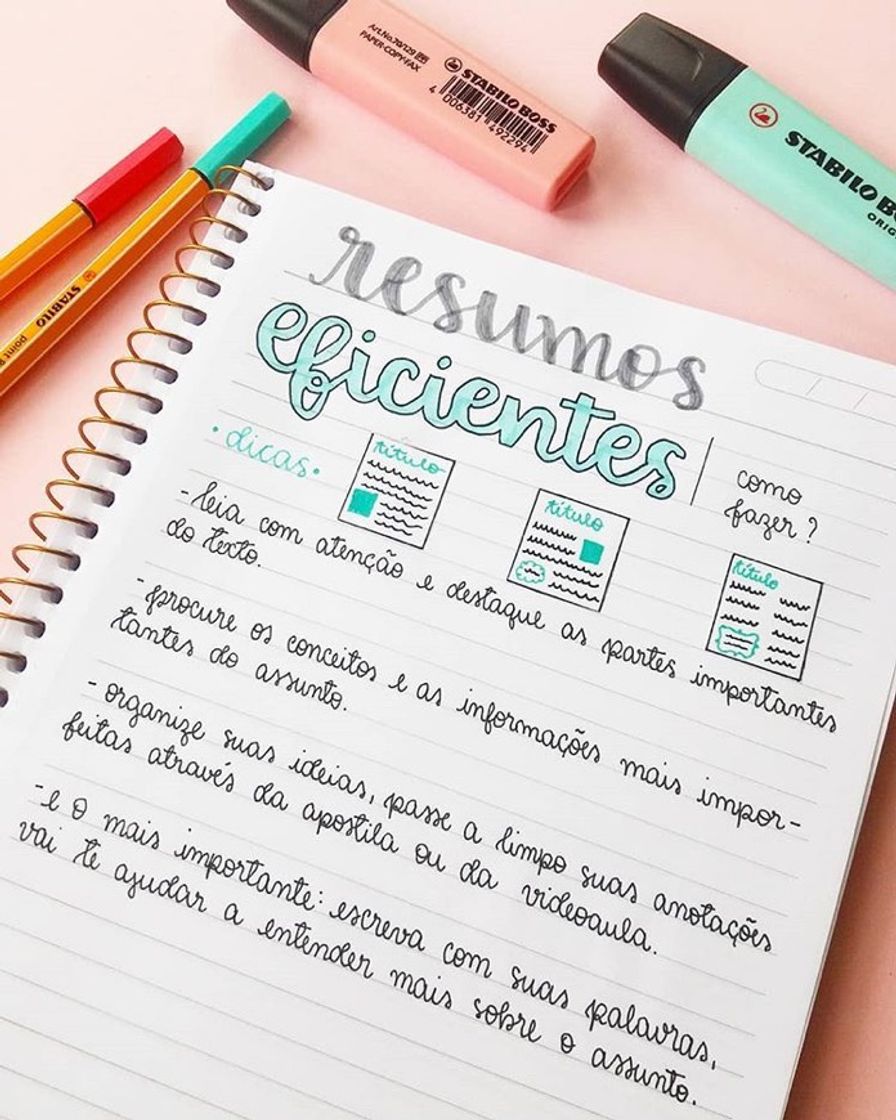 Art.No.70/129
PAPER-COPY-FAX
STABILO BOSS
4 006381 492294
STABILO B
ORIG
STABILO
point 8
resumos
eficientes
como
fazer?
• dicas •
título
título
título
- leia com atenção e destaque as partes importantes
do texto.
- procure os conceitos e as informações mais impor-
tantes do assunto.
- organize suas ideias, passe a limpo suas anotações
feitas através da apostila ou da videoaula.
- e o mais importante: escreva com suas palavras,
vai te ajudar a entender mais sobre o assunto.